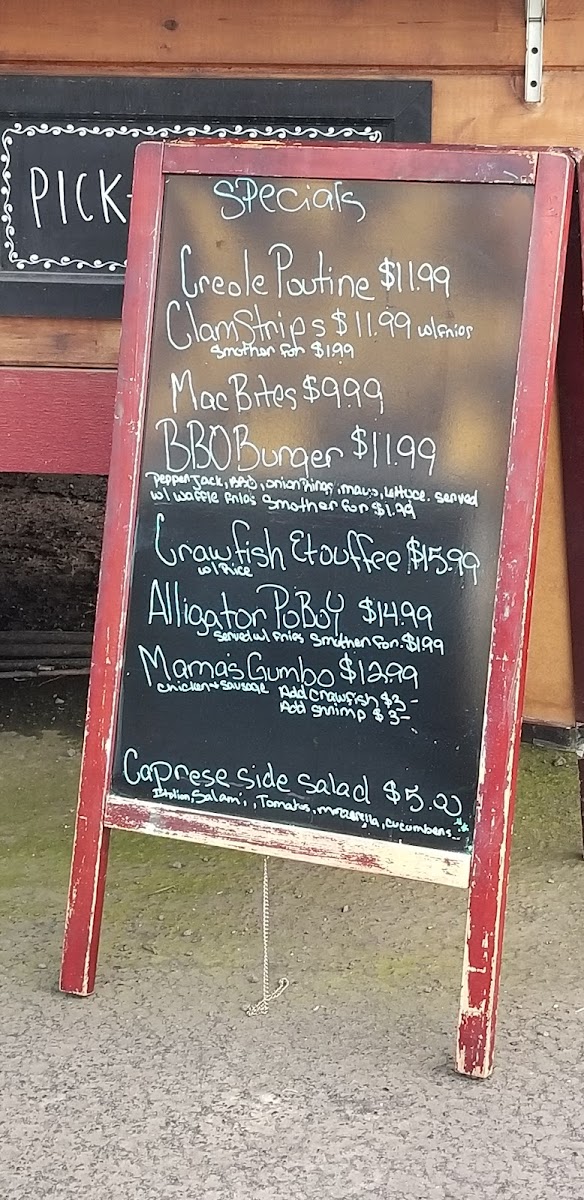 PICK-
Specials
Creole Poutine $11.99
Clam Strips $11.99 w/ Fries
Smother for $1.99
Mac Bites $9.99
BBQ Burger $11.99
Pepper Jack, BBQ, onion Rings, mayo, Lettuce. served
w/ waffle Fries Smother For $1.99
Crawfish Etouffee $15.99
w/ Rice
Alligator PoBoy $14.99
Served w/ Fries Smother For $1.99
Mama's Gumbo $12.99
Chicken + Sausage Add Crawfish $3-
Add Shrimp $3-
Caprese side salad $5.00
Italian, Salami, Tomatos, mozzerella, cucumbers